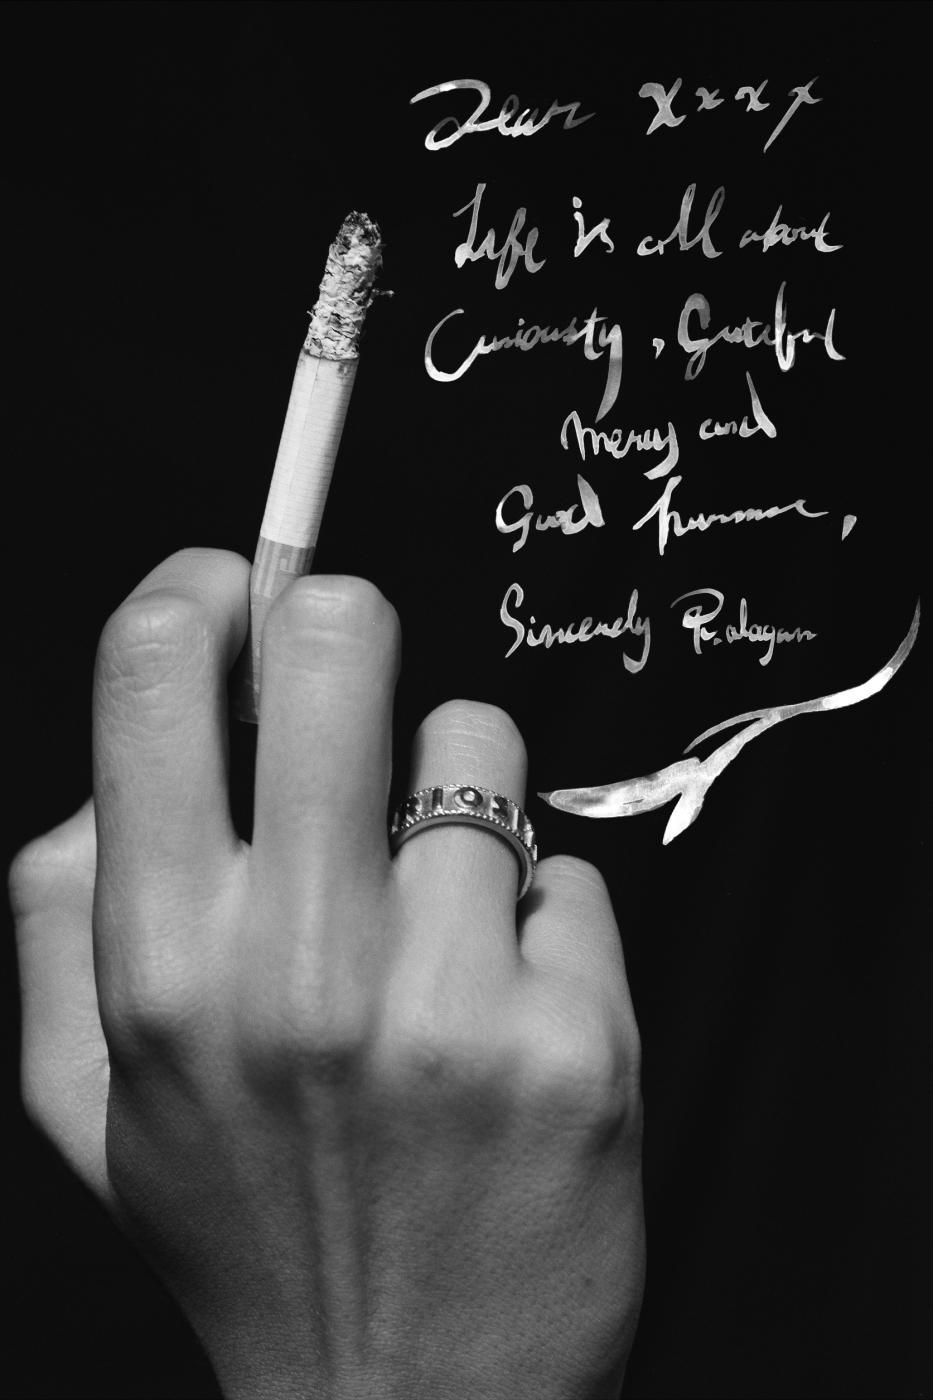 Dear xxxx
Life is all about
Curiousty, Grateful
mercy and
Good humor,
Sincerely